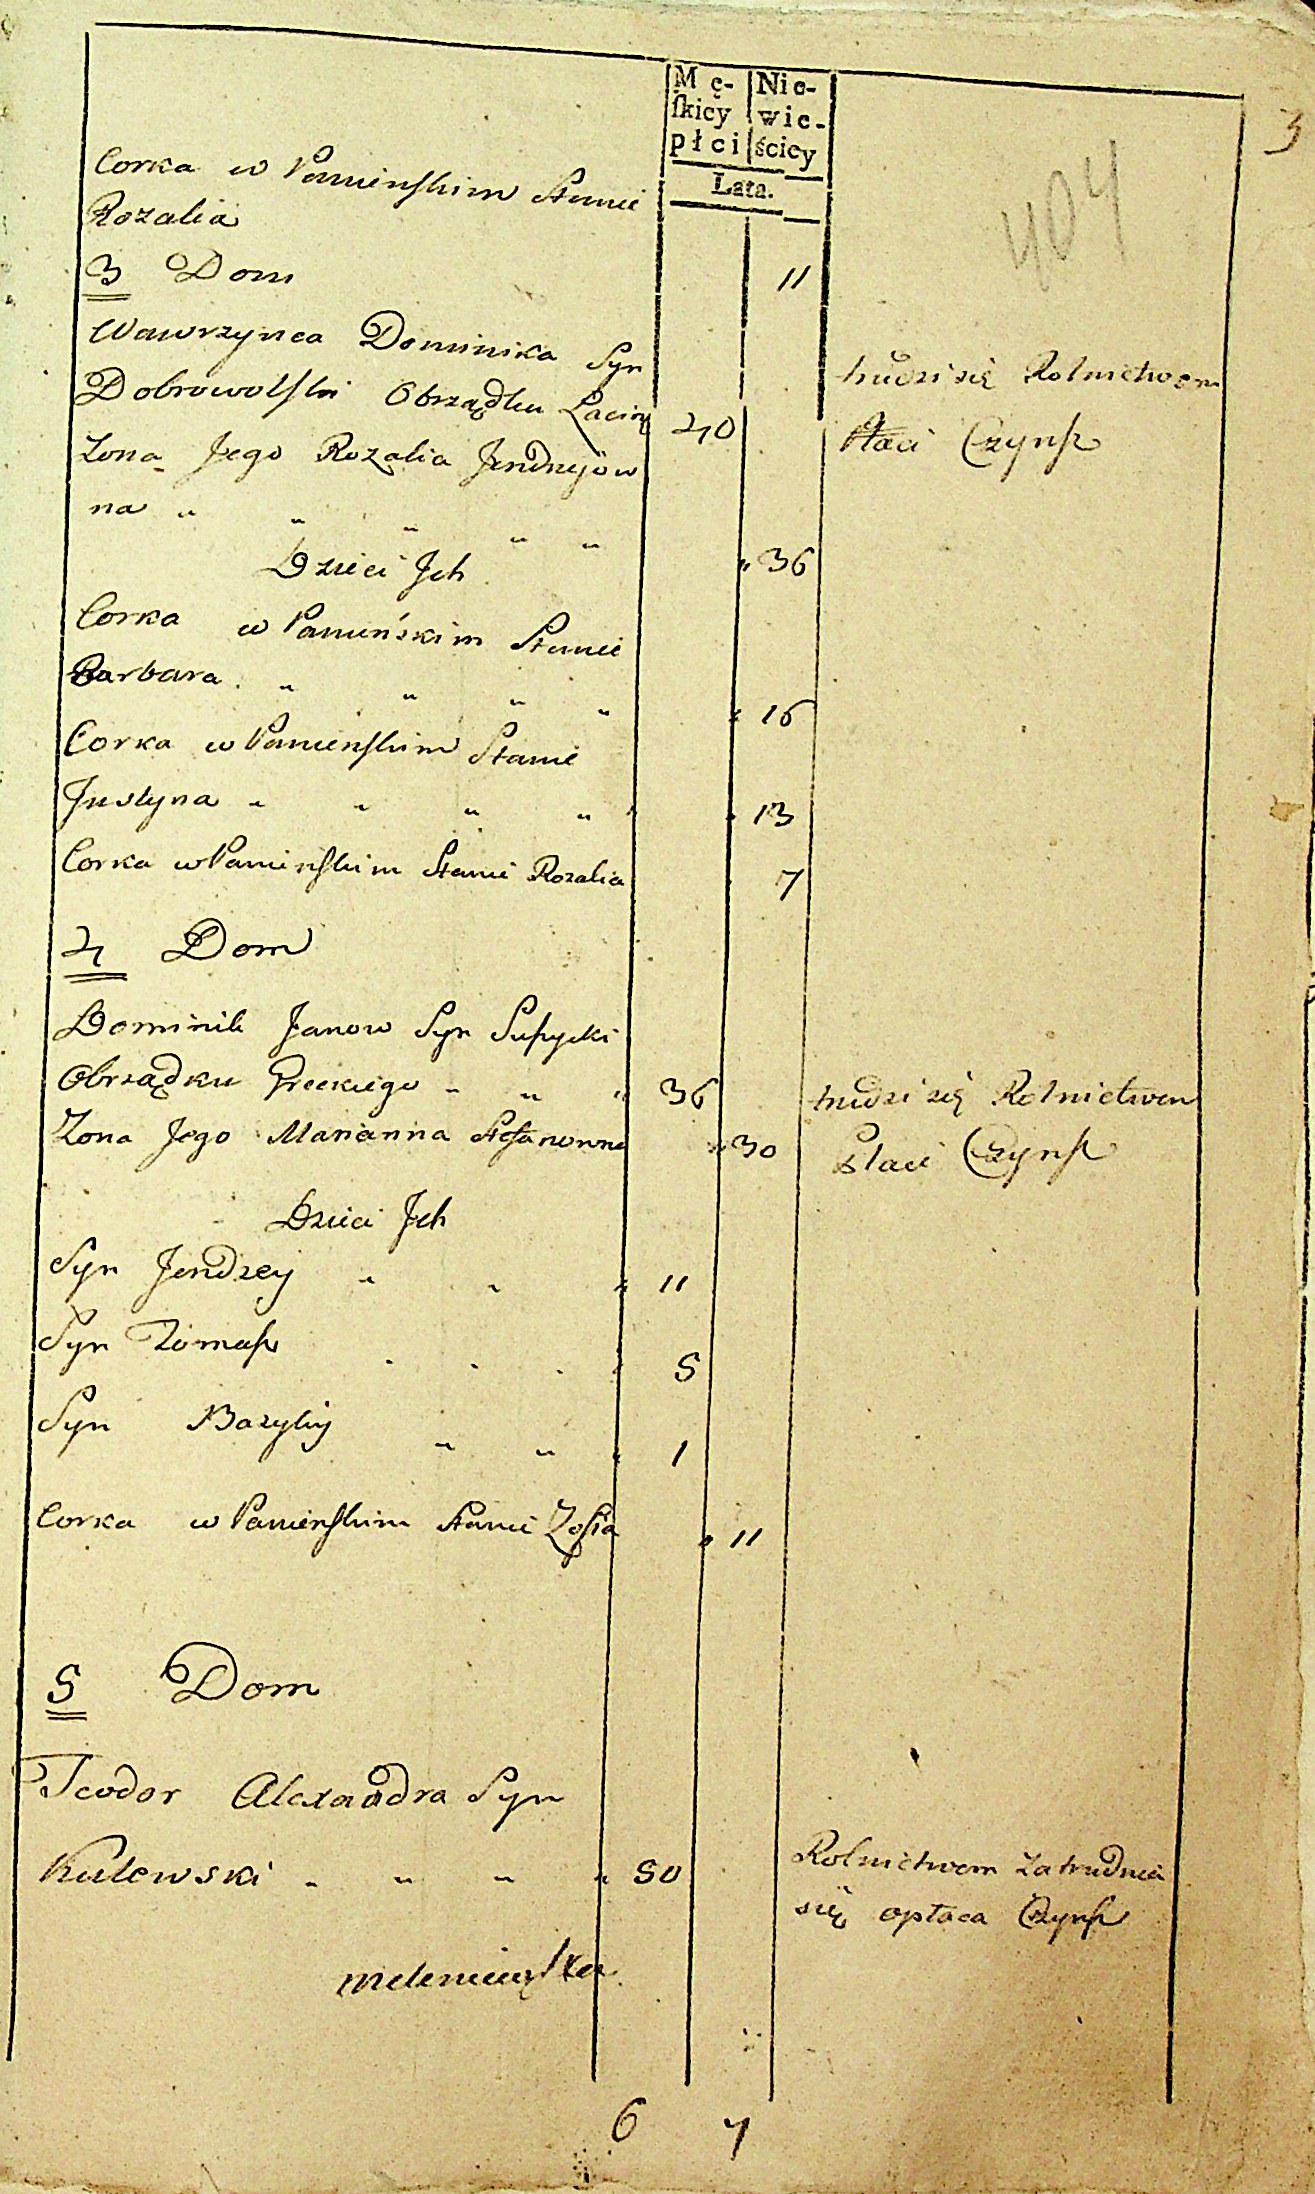 3
404
Mę- Nie-
ſkiey wie-
płci ściey
Lata.
Corka w Panienſkim Stanie
Rozalia 11
3 Dom
Wawrzynca Dominika Syn
Dobrowolſki Obrządku Łaciń 40 trudzi się Rolnictwem
płaci Czynſz
Zona Jego Rozalia Jendrzejow
na " " " " " 36
Dzieci Jch
Corka w Panieńskim Stanie
Barbara " " " " " 16
Corka w Panienſkim Stanie
Justyna " " " " " 13
Corka w Panienſkim Stanie Rozalia 7
4 Dom
Dominik Janow Syn
Obrządku Greckiego " " " 36 trudzi się Rolnictwem
Zona Jego Marianna Stefanowna " 30 płaci Czynſz
Dzieci Jch
Syn Jendrzey " " " 11
Syn Tomaſz 5
Syn Bazyly " " " 1
Corka w Panienſkim Stanie Zofia " 11
5 Dom
Teodor Alexandra Syn
Kulewski " " " " 50 Rolnictwem zatrudnia
się opłaca Czynſz
6 7